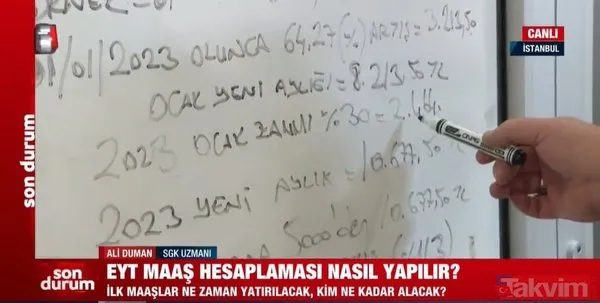 01/01/2023 OLUNCA 64,27 (%) ARTIŞ = 3.213,50
OCAK YENİ AYLIĞI = 8.213,50 TL
2023 OCAK ZAMMI %30 = 2.464
2023 YENİ AYLIK = 10.677,50 TL
5000'den 10.677,50 TL
CANLI
İSTANBUL
son durum
ALİ DUMAN SGK UZMANI
son durum
EYT MAAŞ HESAPLAMASI NASIL YAPILIR?
İLK MAAŞLAR NE ZAMAN YATIRILACAK, KİM NE KADAR ALACAK?
Takvim